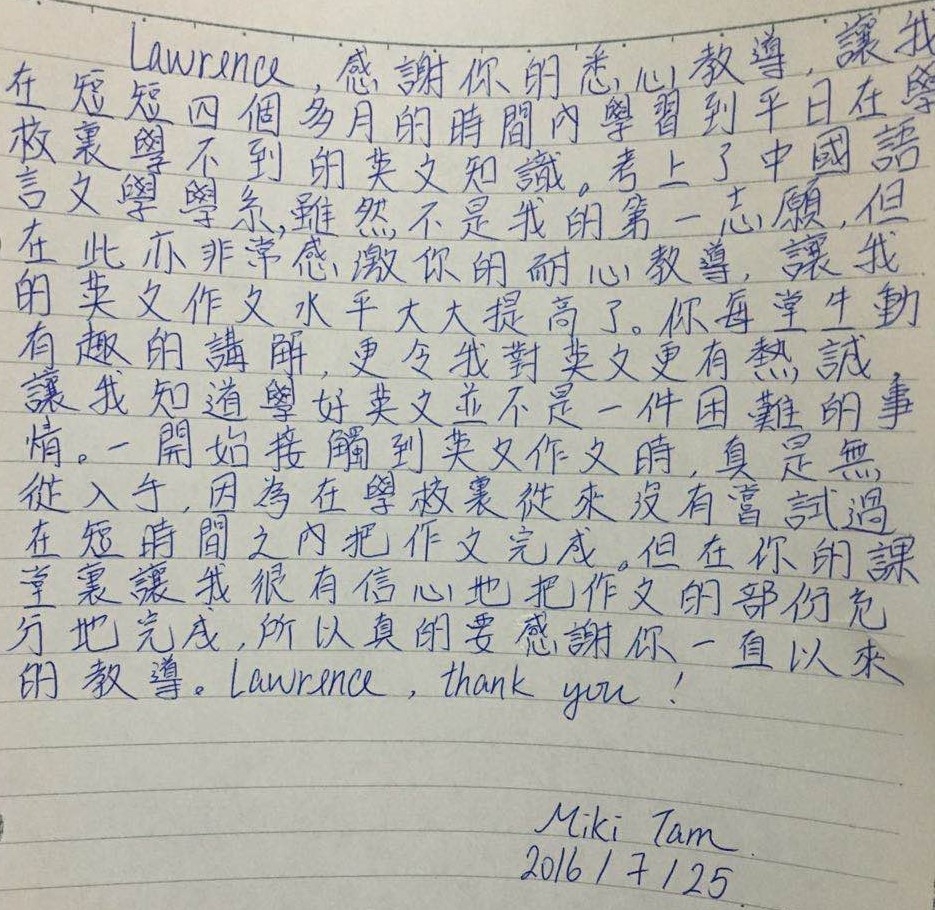 Lawrence, 感謝你的悉心教導, 讓我
在短短四個多月的時間內學習到平日在學
校裏學不到的英文知識。考上了中國語
言文學學系, 雖然不是我的第一志願, 但
在此亦非常感激你的耐心教導, 讓我
的英文作文水平大大提高了。你每堂生動
有趣的講解, 更令我對英文更有熱誠,
讓我知道學好英文並不是一件困難的事
情。一開始接觸到英文作文時, 真是無
從入手, 因為在學校裏從來沒有嘗試過
在短時間之內把作文完成。但在你的課
堂裏讓我很有信心地把作文的部份充
分地完成, 所以真的要感謝你一直以來
的教導。Lawrence, thank you!
Miki Tam.
2016/7/25